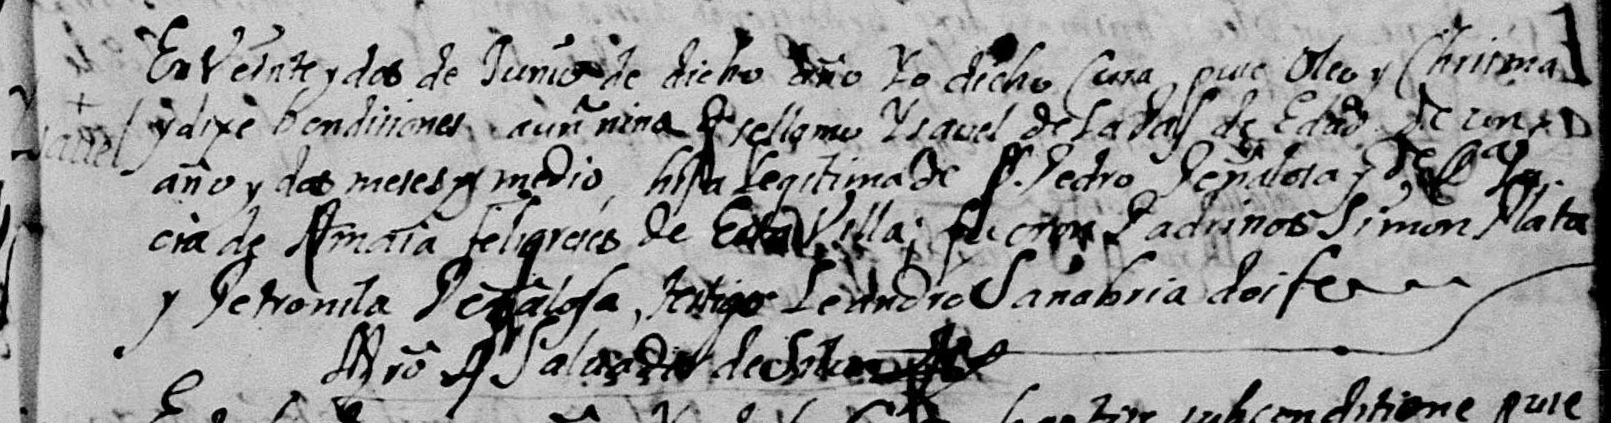 En Veinte y dos de Junio de dicho año Yo dicho Cura puse Oleo y Chrisma
Ysavel y dixe bendiciones a uñ niña q se llamo Ysavel de edad de un
año y dos meses y medio, hija Legitima de D. Pedro Peñalosa y de
cia de Amaia feligreses de Esta Villa; fueron Padrinos Simon Plata
y Petronila Peñalosa, testigo Leandro Sanabria doi fe
Mrõ Salvador de
subconditione puse